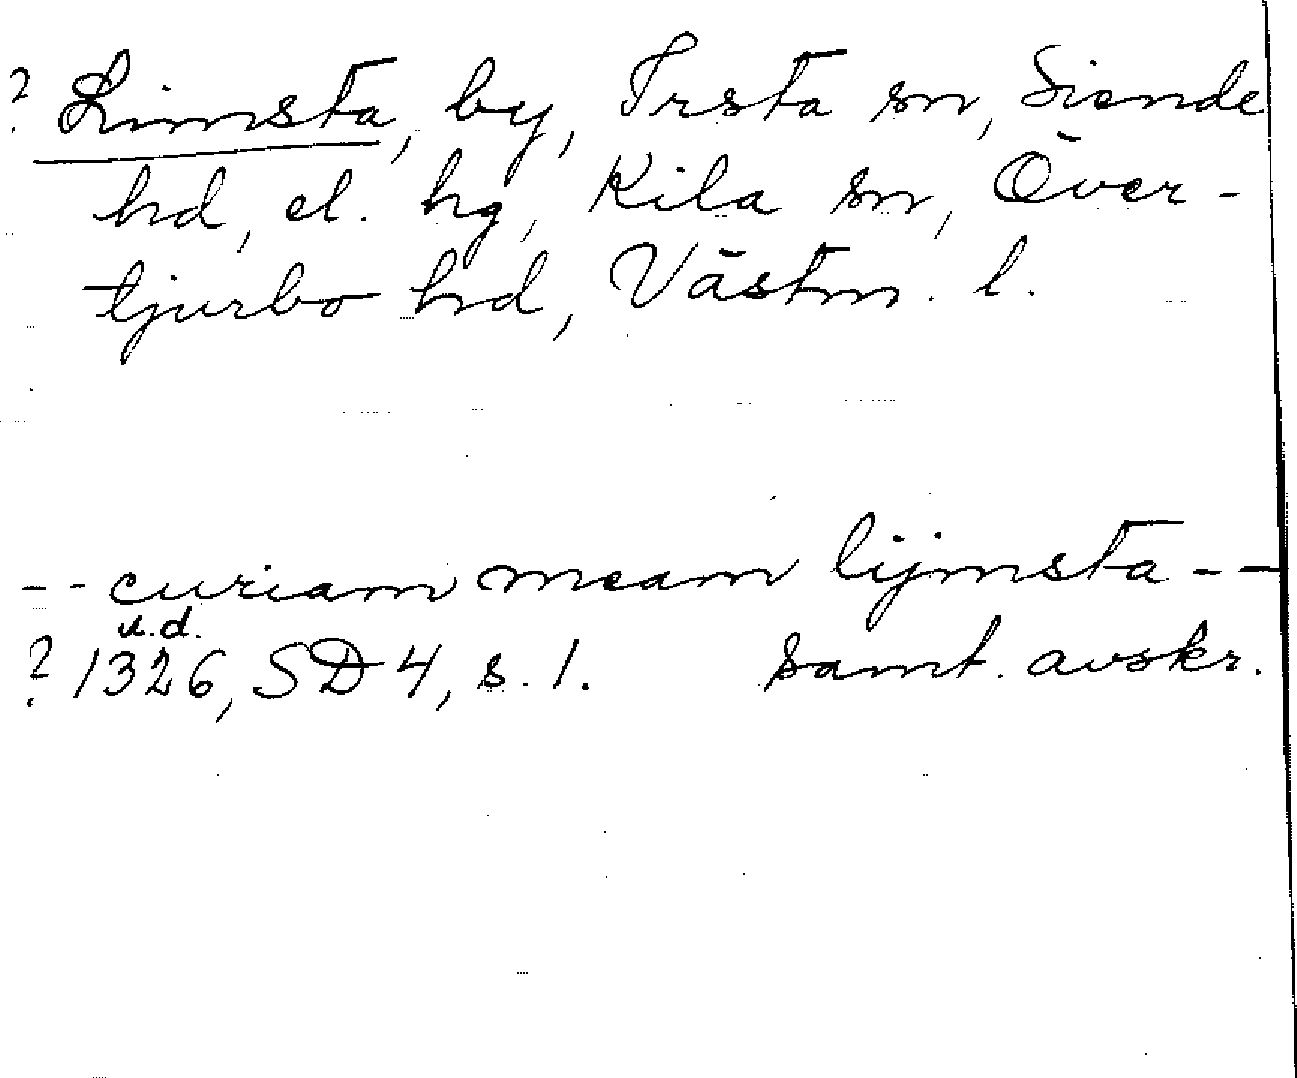 ? Limsta, by, Irsta sn, Siende
hd, el. hg, Kila sn, Över-
tjurbo hd, Västm. l.
- - curiam meam lijmsta - -
u.d.
? 1326, SD 4, s. 1. samt. avskr.